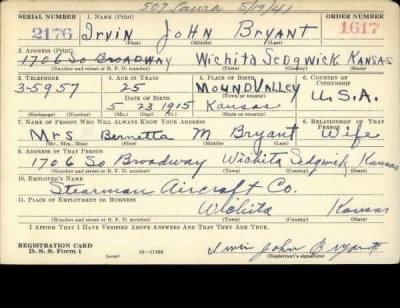 507 Laura 5/19/41
SERIAL NUMBER 1. NAME (Print) ORDER NUMBER
2176 Irvin John Bryant 1617
(First) (Middle) (Last)
2. ADDRESS (Print)
1706 So Broadway Wichita Sedgwick Kansas
(Number and street or R. F. D. number) (Town) (County) (State)
3. TELEPHONE 4. AGE IN YEARS 5. PLACE OF BIRTH 6. COUNTRY OF CITIZENSHIP
3-5957 25 Mound Valley
DATE OF BIRTH (Town or county) U.S.A.
5 23 1915 Kansas
(Mo.) (Day) (Yr.) (State or country)
7. NAME OF PERSON WHO WILL ALWAYS KNOW YOUR ADDRESS 8. RELATIONSHIP OF THAT PERSON
Mrs Bernetta M Bryant Wife
(Mr., Mrs., Miss) (First) (Middle) (Last)
9. ADDRESS OF THAT PERSON
1706 So Broadway Wichita Sedgwick Kansas
(Number and street or R. F. D. number) (Town) (County) (State)
10. EMPLOYER'S NAME
Stearman Aircraft Co.
11. PLACE OF EMPLOYMENT OR BUSINESS
Wichita Kansas
(Number and street or R. F. D. number) (Town) (County) (State)
I AFFIRM THAT I HAVE VERIFIED ABOVE ANSWERS AND THAT THEY ARE TRUE.
REGISTRATION CARD
D. S. S. Form 1 Irvin John Bryant
(Registrant's signature)